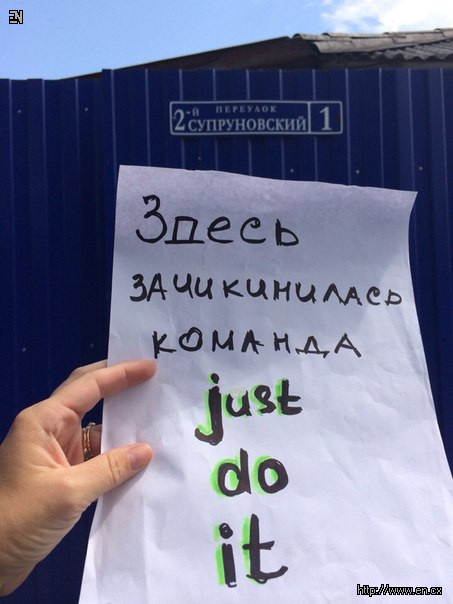 EN
2-й ПЕРЕУЛОК
СУПРУНОВСКИЙ 1
Здесь
ЗАЧИКИНИЛАСЬ
КОМАНДА
just
do
it
http://www.en.cx